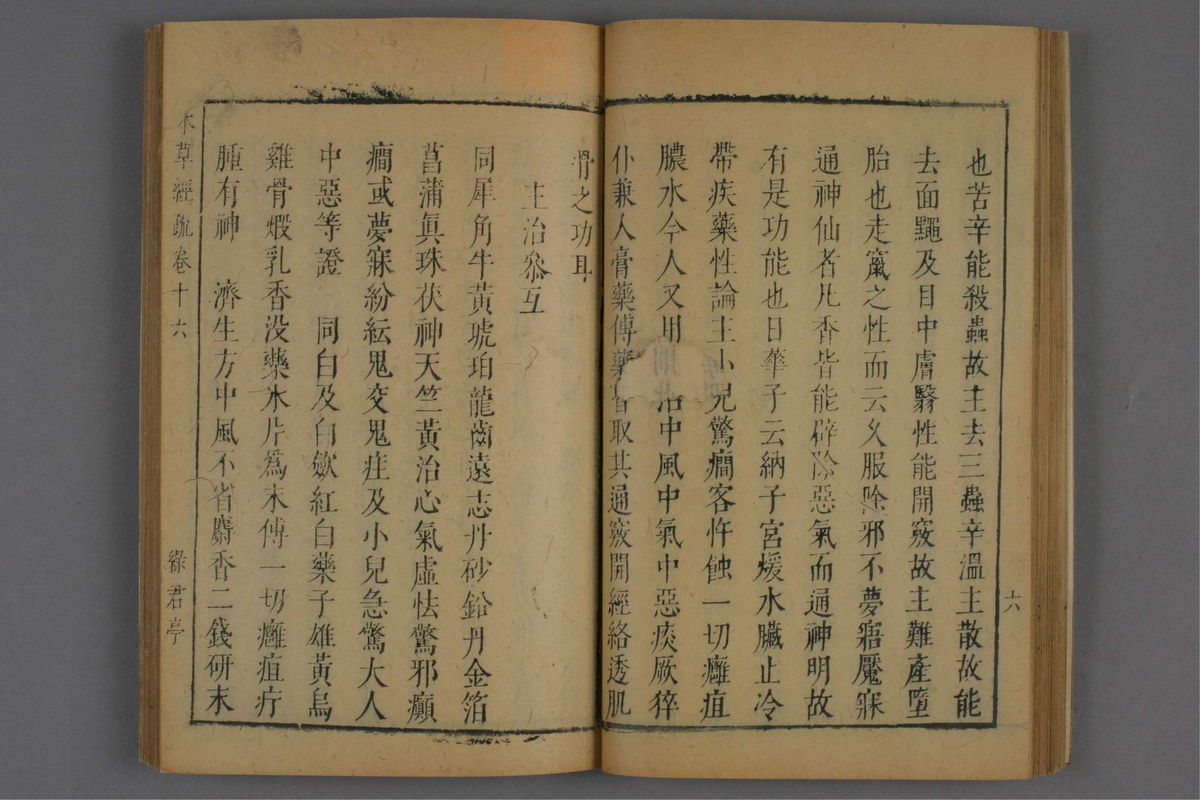 也苦辛能殺蟲故主去三蟲辛溫主散故能
去面䵴及目中膚翳性能開竅故主難產墮
胎也走竄之性而云久服除邪不夢寤魘寐
通神仙者凡香皆能辟除惡氣而通神明故
有是功能也日華子云納子宮煖水臟止冷
帶疾藥性論主小兒驚癇客忤蝕一切癰疽
膿水今人又用治中風中氣中惡痰厥猝
仆兼人膏藥傅藥皆取其通竅開經絡透肌
六
骨之功耳
主治參互
同犀角牛黃琥珀龍齒遠志丹砂鉛丹金箔
菖蒲眞珠茯神天竺黃治心氣虛怯驚邪癲
癇或夢寐紛紜鬼交鬼疰及小兒急驚大人
中惡等證　同白及白歛紅白藥子雄黃烏
雞骨煅乳香没藥氷片爲末傅一切癰疽疔
腫有神　濟生方中風不省麝香二錢研末
本草經疏卷十六
綠君亭